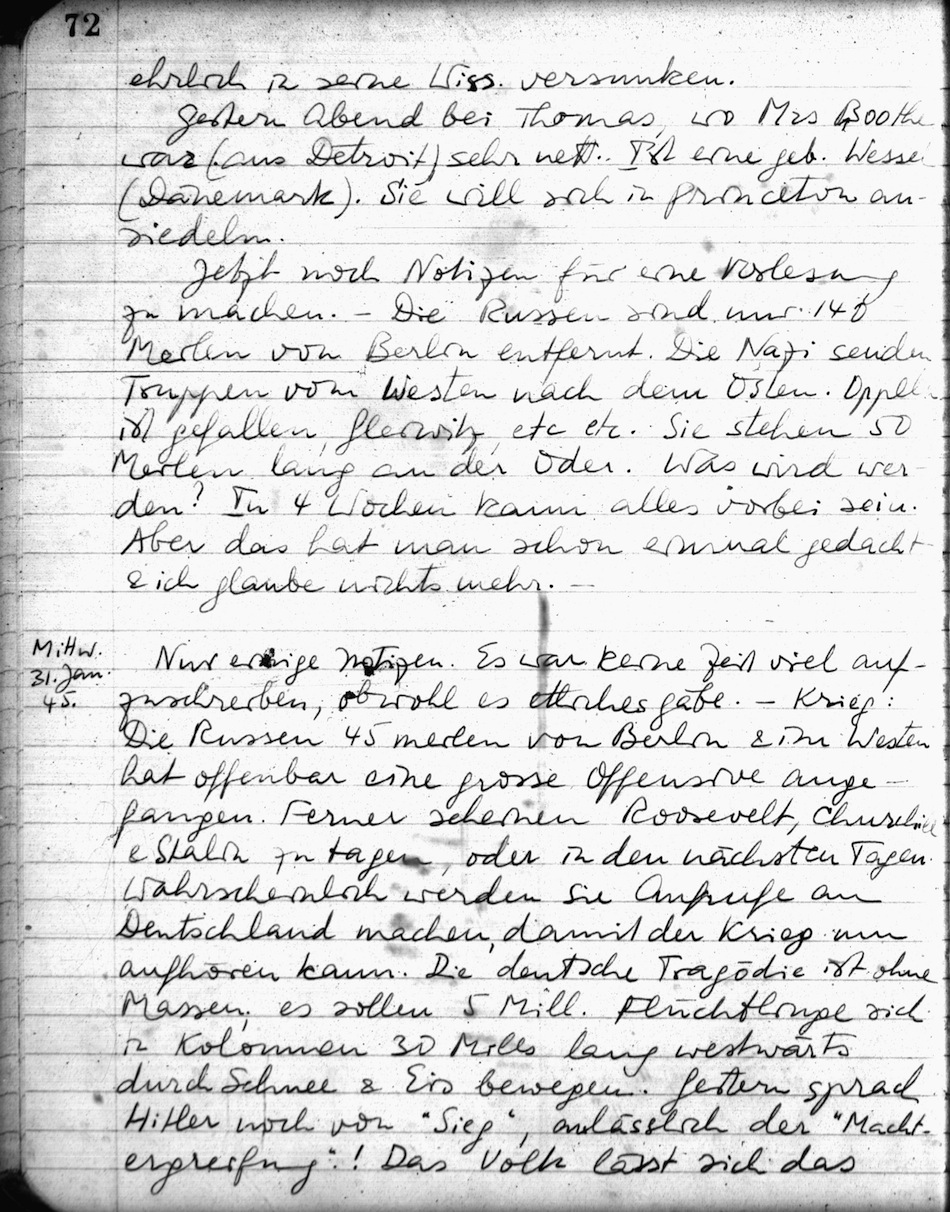 72
ehrlich in seine Wiss. versunken.
Gestern Abend bei Thomas, wo Mrs Boothe
war (aus Detroit) sehr nett. Ist eine geb. Wessel
(Dänemark). Sie will sich in Princeton an-
siedeln.
Jetzt noch Notizen für eine Vorlesung
zu machen. – Die Russen sind nur 140
Meilen von Berlin entfernt. Die Nazi senden
Truppen vom Westen nach dem Osten. Oppeln
ist gefallen, Gleiwitz, etc etc. Sie stehen 50
Meilen lang an der Oder. Was wird wer-
den? In 4 Wochen kann alles vorbei sein.
Aber das hat man schon einmal gedacht
& ich glaube nichts mehr. –
Mittw.
31. Jan.
45.
Nur einige Notizen. Es war keine Zeit viel auf-
zuschreiben, obwohl es etliches gäbe. – Krieg:
Die Russen 45 meilen von Berlin & im Westen
hat offenbar eine grosse Offensive ange-
fangen. Ferner scheinen Roosevelt, Churchill
& Stalin zu tagen, oder in den nächsten Tagen.
Wahrscheinlich werden sie Aufrufe an
Deutschland machen, damit der Krieg nun
aufhören kann. Die deutsche Tragödie ist ohne
Massen, es sollen 5 Mill. Flüchtlinge sich
in Kolonnen 30 Miles lang westwärts
durch Schnee & Eis bewegen. Gestern sprach
Hitler noch von "Sieg", anlässlich der "Macht-
ergreifung"! Das Volk lässt sich das